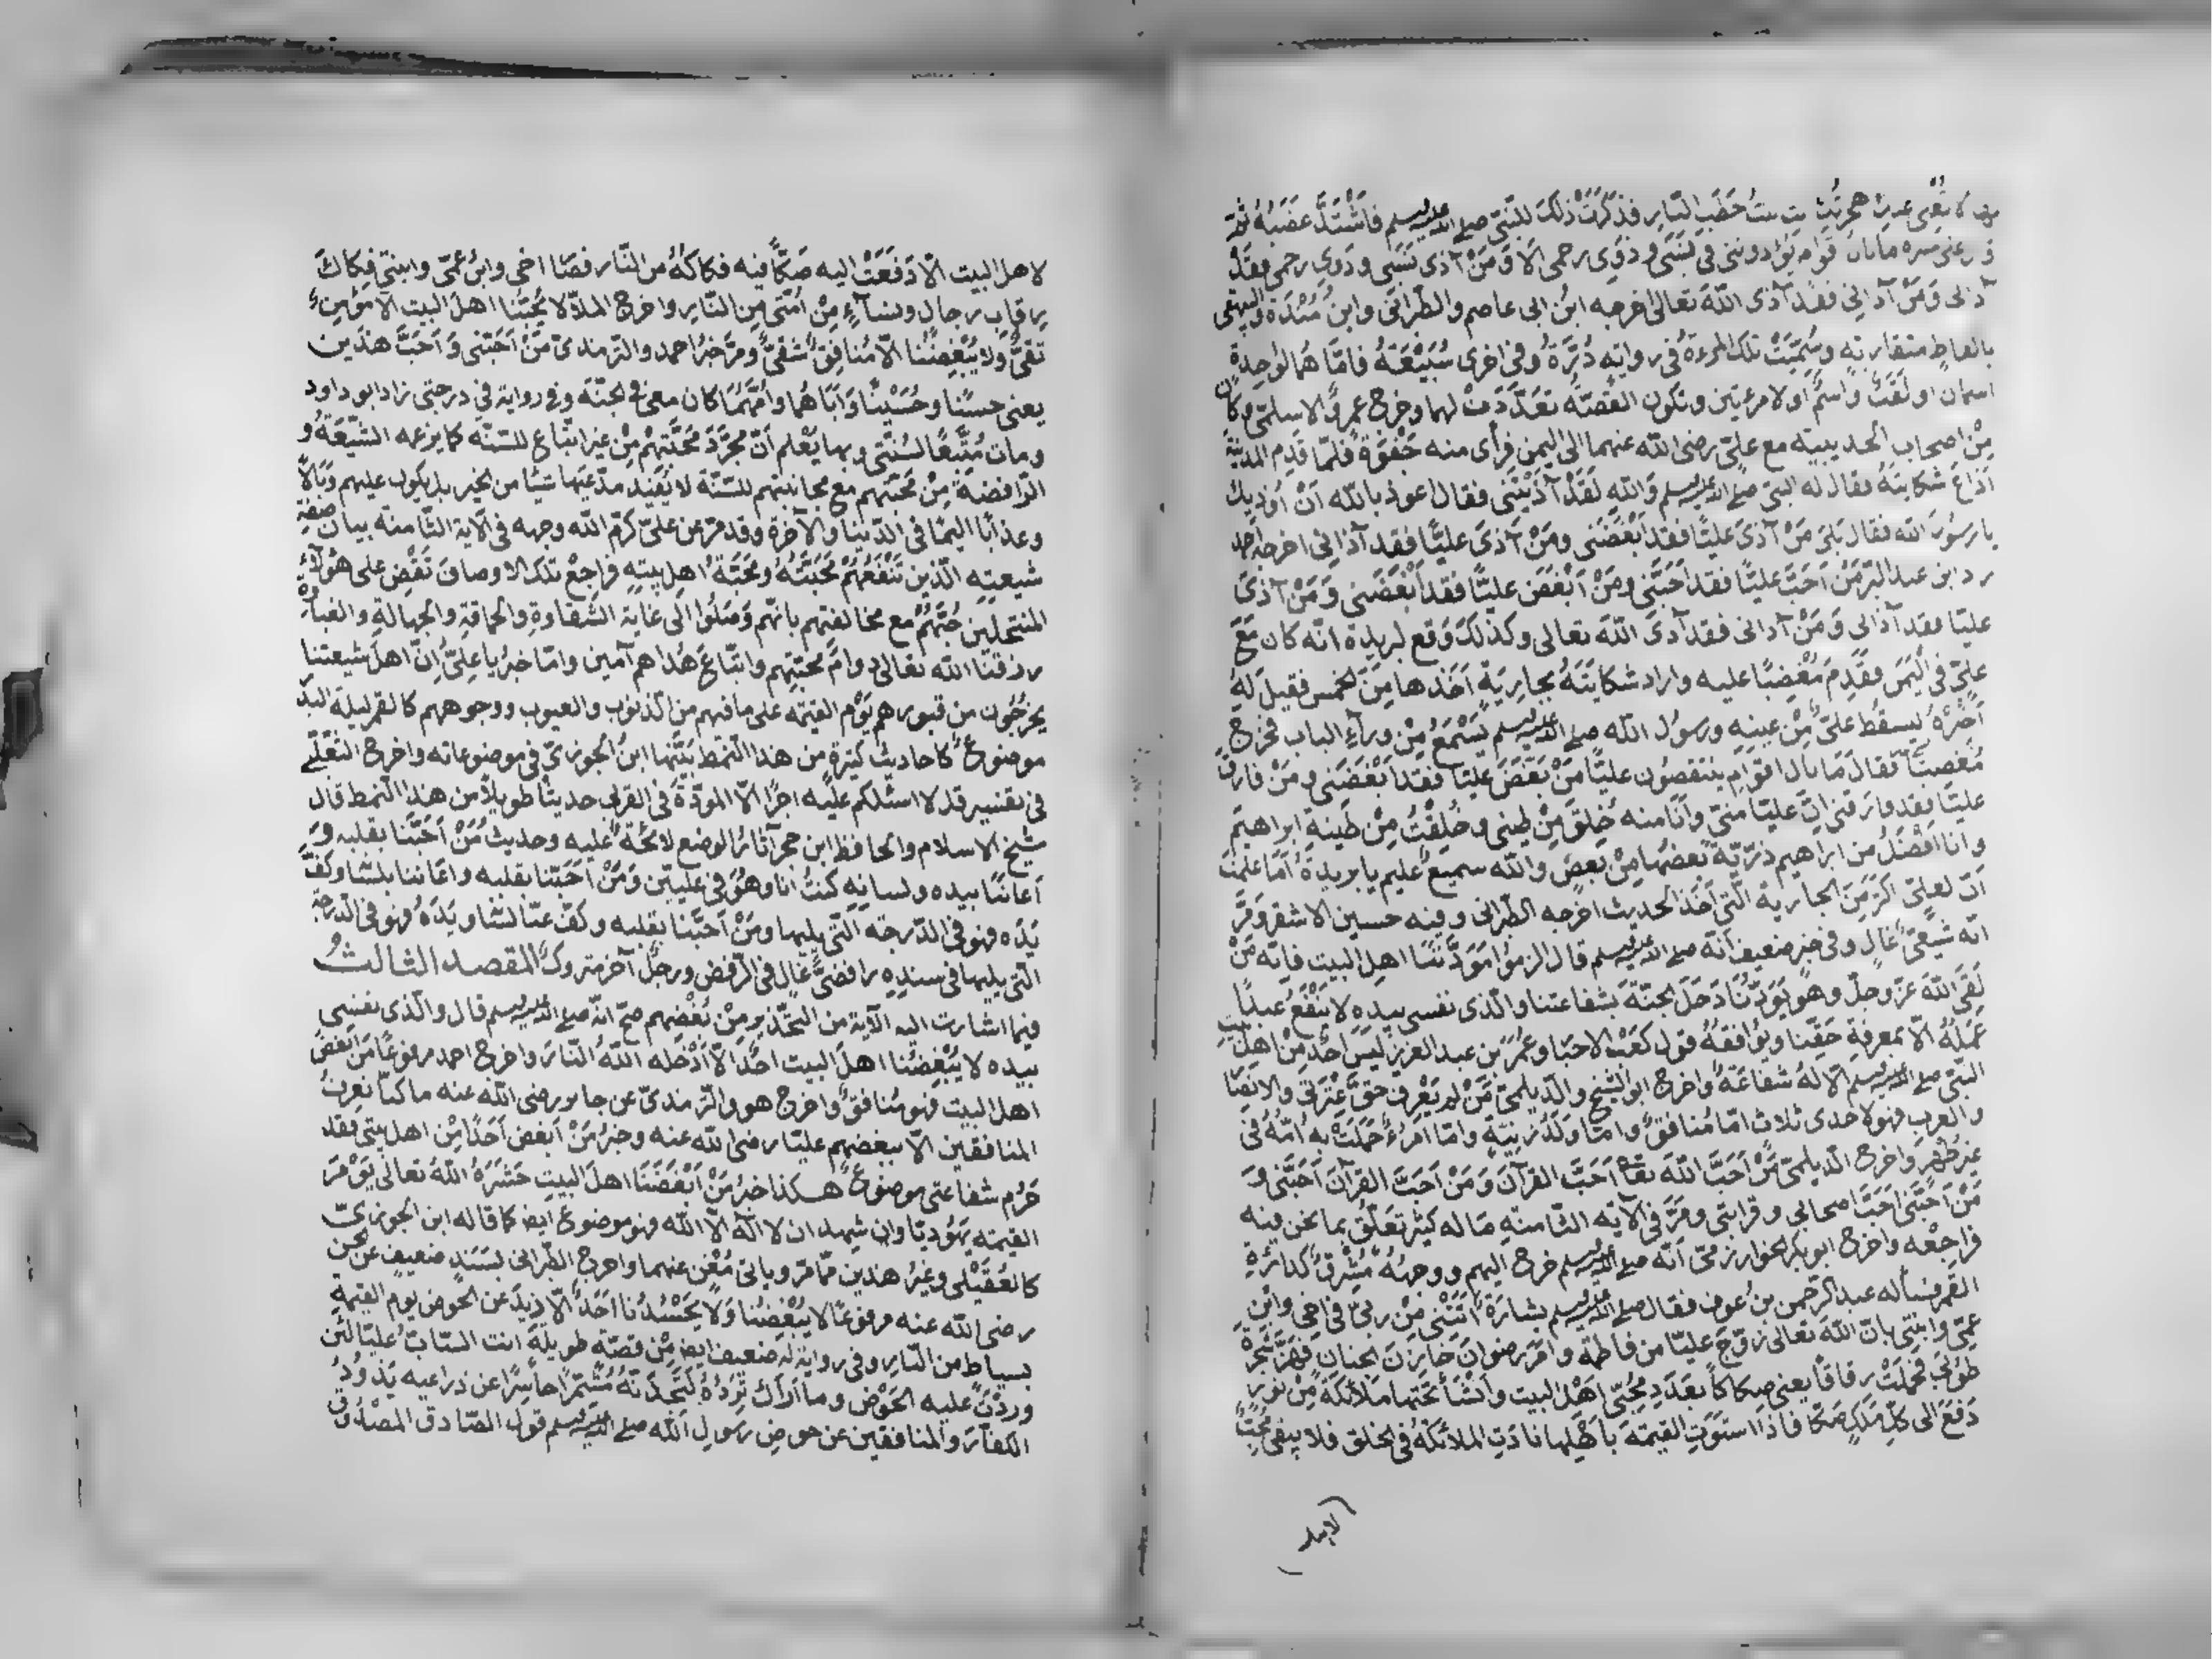 لها لا يغنى عنك هجرتك انت بنت حطب النار فذكرت ذلك للنبي صلى الله عليه وسلم فاشْتَدَّ غضبُهُ ثمّ
قال على منبره ما بال اقوام يؤذونني في نَسَبي وذَوِي رحمي الا وَمَنْ آذى نَسَبي وذوي رحمي فقدْ
آذاني وَمَنْ آذاني فقد آذى اللهَ تعالى اخرجه ابنُ ابى عاصم والطّبرانىّ وابنُ مَنْدَة والبيهقى
بالفاظٍ متقاربةٍ وسُمِّيَتْ تلك المرءة في رواية دُرَّة وفى اخرى سُبَيْعَة فامّا هُما لواحدة
اسمان او لَقَبٌ واسمٌ او لامرءتين وتكون القصّة تعدّدتْ لهما وخرج عمرو الاسلمىّ وكان
مِنْ اصحاب الحديبية مع علىّ رضى الله عنهما الى اليمن فرأى منه جَفْوَةً فلمّا قَدِم المدينة
اَذَاعَ شكايتَهُ فقال له النبىّ صلى الله عليه وسلم وَاللهِ لَقَدْ آذَيْتَنى فقال اعوذ بالله اَنْ اُوذيك
يا رسُولَ الله فقال بَلىَ مَنْ آذىَ عليًّا فقد آذانى اخرجه احمد
زاد ابن عبد البرّ مَنْ اَحَبَّ عليًّا فقد اَحَبَّنى ومَنْ اَبْغَضَ عليًّا فقد اَبْغَضَنى وَمَنْ آذىَ
عليّا فقد آذانى وَمَنْ آذانى فقد آذىَ اللهَ تعالى وكذلكَ وَقع لبريدة انّه كان مَعَ
علىّ فى اليَمَن فقَدِمَ مُغْضِبًا عليه واراد شكايَتَهُ بجارِيَةٍ اَخَذَها مِنَ الخمس فقيل لهُ
اَخْبِرْهُ ليسقُط علىٌّ مِنْ عينِهِ ورسُول الله صلى الله عليه وسلم يَسْمَعُ مِنْ ورآءِ الباب فخرج
مُغضبًا فقالَ مَا بال اقوامٍ ينتقصُون عليًّا مَنْ بَغَضَ عليّا فقد اَبْغَضَنى ومَنْ فارقَ
عليّا فقد فارَقنى انّ عليّا منّى وَاَنَا منه خُلِقَ مِنْ طينى وخُلِقْتُ مِنْ طينةِ ابراهيمَ
وانا افضَلُ من ابراهيم ذرّيّةً بعضُها مِنْ بعضٍ والله سميعٌ عليم يا بريدةُ اَمَا علمْتَ
انّ لعلىّ اَكثَرَ مِنَ الجارية الّتى اَخَذ الحديث اخرجه الطّبرانى وفيه حسين الاشقر ومَرَّ
انّه شيعىٌّ غالٍ وفى خبر ضعيف انّه صلى الله عليه وسلم قال الزموُا مَوَدَّتَنَا اهل البيت فإنّه مَنْ
لقى اللهَ عزّ وجلّ وهو يَوَدُّنا دَخَلَ الجنّةَ بشفاعتنا والّذى نفسى بيدِهِ لا يَنْفَعُ عبدًا
عَمَلُهُ الّا بمعرفةِ حَقِّنا ويُوَافقهُ قول كعب الاحبار وعُمر بن عبد العزيز ليس احدٌ مِنْ اهل بيت
النّبىّ صلى الله عليه وسلم الّا لهُ شفاعَةٌ واخرج ابو الشيخ والدّيلمىّ مَنْ لم يَعْرف حَقَّ عِتْرتى والانصار
والعربِ فهو لاحدى ثلاث امّا مُنافقٌ وامّا ولَدُ زنيةٍ وامّا امرُءٌ حَمَلَتْ به اُمُّهُ فى
غير طُهْر واخرج الدّيلمىّ مَنْ اَحَبَّ اللهَ تعالى اَحَبَّ القرآن وَمَنْ اَحَبَّ القرآنَ اَحَبَّنى وَ
مَنْ اَحَبَّنى اَحَبَّ اصحابى وقرابتى ومَرَّ فى الآية الثّامنةِ مَا له كثيرُ تعلّقٍ بما نحن فيه
فراجعْه واخرج ابو بكر الخوارزمىّ اَنّه صلى الله عليه وسلم خرج اليهم ووجههُ مُشرِقٌ كدائرةِ
القمر فسأله عبد الرّحمن بن عوف فقال صلى الله عليه وسلم بشارَةٌ اَتَتْنى مِنْ ربّى فى اخى وابْنِ
عمّى وابنتى بانّ اللهَ تعالى زوّجَ عليّا من فاطمة وامَر رضوانَ خازنَ الجنان فهَزَّ شجرةَ
طُوبى فحملَتْ رقاقًا يعنى صِكاكًا بعَدَدِ مُحِبّى اَهْل البيت واَنْشَأ تحتها ملائكةً مِنْ نورٍ
دَفَعَ الى كلّ مَلَكٍ صَكًّا فاذا استوَتِ القيمة باَهْلِها نادَتِ الملائكة فى الخلق فلا يبقى مُحِبٌّ
لاهل البيت الّا دَفَعَتْ اليه صَكًّا فيه فكاكهُ من النّار فصَار اخى وابنُ عمّى وابنتى فِكاكَ
رِقابِ رجالٍ ونسآءٍ مِنْ اُمّتى مِنَ النّارِ واخرج الملّا لا يُحبّنا اهلَ البيت الّا مؤمِنٌ
تقىٌّ وَلا يُبْغِضُنا الّا مُنافقٌ شقىٌّ ومَرّ خبرُ احمد والترمذىّ مَنْ اَحَبّنى وَاَحَبَّ هذَين
يعنى حسنًا وحُسَيْنًا وَاَبَاهُما واُمَّهُمَا كان معى فى الجنّة وفى رواية فى درجتى زاد ابو داود
ومات مُتَّبِعًا لسُنّتى وبها يُعْلم اَنّ مُجرَّدَ مَحَبَّتِهِمْ مِنْ غير اتّباعٍ للسّنّة كما يزعمه الشّيعَةُ و
الرّافضة مِنْ مَحَبّتهم مع مجانبتهم للسّنّة لا يُفيد مدّعيَها شيئًا من الخير بل يكون عليهم وَبالًا
وعذابًا اليمًا فى الدّنيا والآخرة وقد مرّ عن علىّ كرّم الله وجهه فى الآية الثّامنة بيان صفة
شيعتِهِ الّذين تَنْفَعُهُمْ مَحَبّتُهُ ومَحبّةُ اهل بيتِهِ فراجعْ تلك الاوصاف تَقْضِ على هٰؤلآءِ
المنتحلين حُبَّهُمْ مع مخالفتهم بانّهم وَصَلُوا الى غاية الشّقاوةِ والحماقةِ والجهالةِ والغباوَةِ
رزقنا الله تعالى دوامَ محبّتِهِم واتّباعَ هُداهم آمين وامّا خبرُ يا علىّ اِنّ اهلَ شيعتنا
يخرجُون من قبورهم يَوْم القيمة على ما فيهم من الذنوب والعيوب ووجوههم كالقمر ليلة البدر
موضوعٌ كاحاديث كثيرة من هذا النّمط بَيّنها ابنُ الجوزىّ فى موضوعاته واخرج الثّعلبىّ
فى تفسير قل لا اسئلكم عليه اجرًا الّا المودّةَ فى القربى حديثًا طويلًا من هذا النّمط قال
شيخ الاسلام والحافظ ابن حجر آثارُ الوضع لائحةٌ عليه وحديثُ مَنْ اَحَبّنا بقلبه وَ
اَعاننا بيده ولسانِهِ كنتُ انا وهُوَ فى عليّين وَمَنْ اَحَبّنا بقلبه واعَاننا بلسانه وكفّ
يَدَه فهو فى الدّرجة الّتى يليها ومَنْ اَحَبَّنا بقلبه وكفّ عنّا لسانه ويَدَهُ فهو فى الدّرجة
الّتى يليها فى سندِهِ رافضىٌّ غالٍ فى الرّفض ورجلٌ آخر متروكٌ المقصد الثالثُ
فيما اشارت اليه الآية من التحذيرِ مِنْ بُغْضِهِم صحّ انّه صلى الله عليه وسلم قال والّذى نفسى
بيده لا يُبْغِضُنا اهلَ البيت احدٌ الّا اَدْخله اللهُ النّارَ واخرج احمد مرفوعًا مَنْ اَبْغَضَ
اهل البيت فهو مُنافقٌ واخرج هو والتّرمذىّ عن جابر رضى الله عنه ما كنّا نعرفُ
المنافقين الّا ببغضهم عليّا رضى الله عنه وخبرُ مَنْ اَبغض اَحَدًا مِنْ اهل بيتى فقد
حَرُم شفاعتى موضوعٌ هكذا خبرُ مَنْ اَبْغَضَنا اهلَ البيت حَشَرَهُ اللهُ تعالى يَوْمَ
القيمة يَهُوديًّا وان شهد ان لا الٰه الّا الله فهو موضوعٌ ايضا كما قاله ابن الجوزىّ
كالعُقَيْلى وغيرُ هذين ممّا مرّ وياتى مُغْنٍ عنهما واخرج الطّبرانى بسَنَدٍ ضعيفٍ عن الحسن
رضى الله عنه مرفوعًا لا يُبْغِضُنا وَلا يَحْسُدُنا احَدٌ الّا ذِيدَ عن الحوض يوم القيمةِ
بسياطٍ من النّارِ وفى رواية له ضعيف ايضا مِنْ قصّةٍ طويلةٍ انت السّابّ عليًّا لئن
وردْتَ عليه الحَوْضَ وما اَرَاك تَرِدُهُ لَتَجِدَنّهُ مُشَمِّرًا حاسِرًا عن ذراعيه يَذُودُ
الكفّارَ والمنافقين عن حوضِ رسولِ الله صلى الله عليه وسلم قول الصّادق المصْدُوق